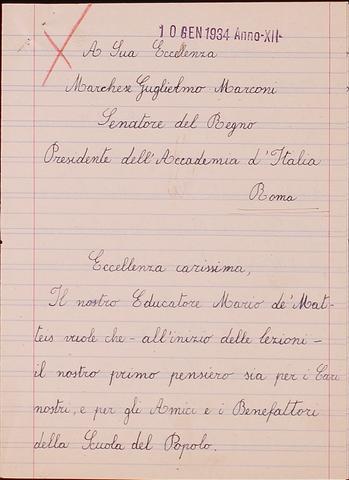 10 GEN 1934 Anno-XII-
A Sua Eccellenza
Marchese Guglielmo Marconi
Senatore del Regno
Presidente dell'Accademia d'Italia
Roma
Eccellenza carissima,
Il nostro Educatore Mario de' Mat-
teis vuole che - all'inizio delle lezioni -
il nostro primo pensiero sia per i Cari
nostri, e per gli Amici e i Benefattori
della Scuola del Popolo.